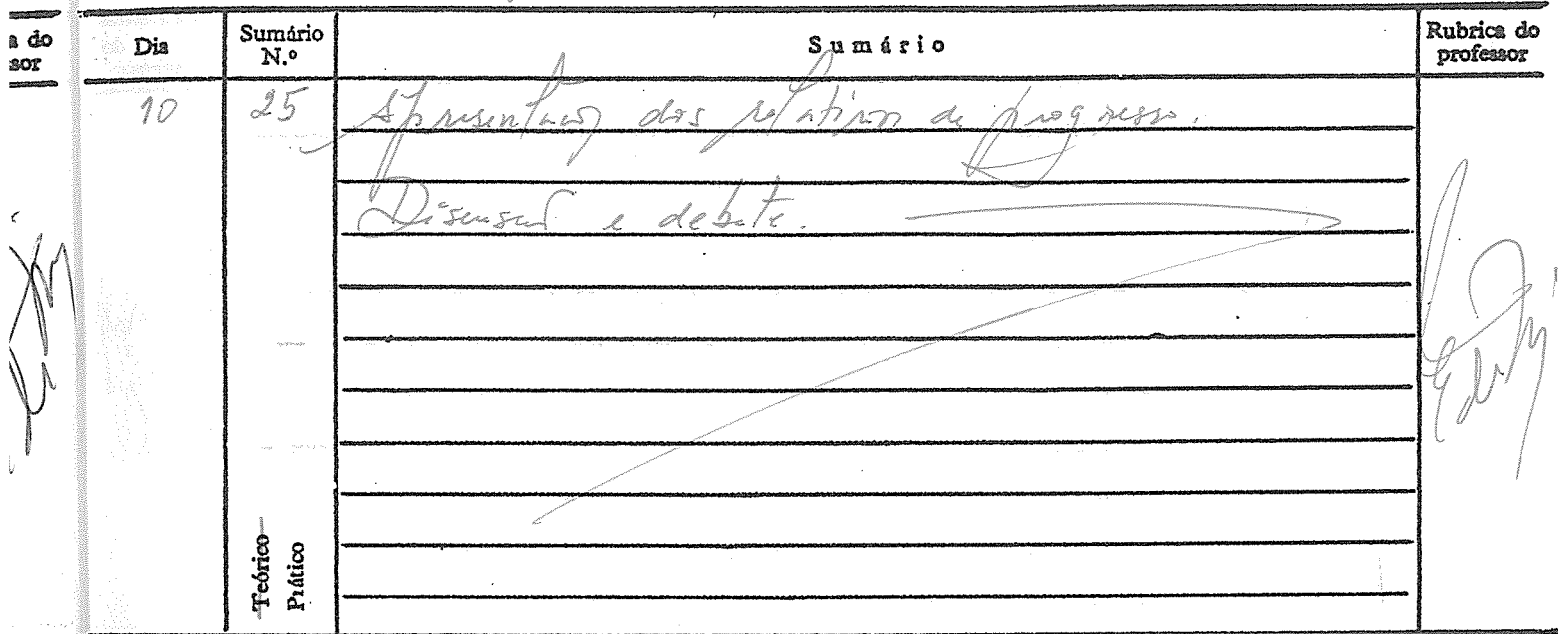 a do
sor
Dia
Sumário
N.º
Sumário
Rubrica do
professor
10
25
Apresentação dos relatórios de progresso.
Discussão e debate.
Teórico
Prático